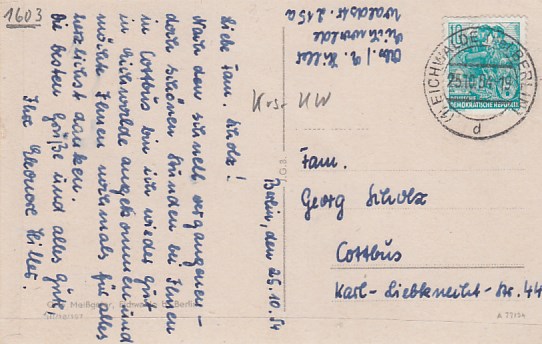 1603
Liebe Fam. Scholz!
Nach den schnell vergangenen
doch schönen Stunden bei Ihnen
in Cottbus bin ich wieder gut
in Eichwalde angekommen und
möchte Ihnen nochmals für alles
herzlichst danken.
die besten Grüße und alles Gute,
Ihre Eleonore Hiller.
Abs.
Hiller
Eichwalde
Waldstr. 215a
Krsr KW
EICHWALDE
BERLIN
25.10.54
d
DEUTSCHE DEMOKRATISCHE REPUBLIK
Berlin, den 25.10.54
Fam.
Georg Scholz
Cottbus
Karl-Liebknecht-Str. 44
Marggraf
Eichwalde b. Berlin
A 77154